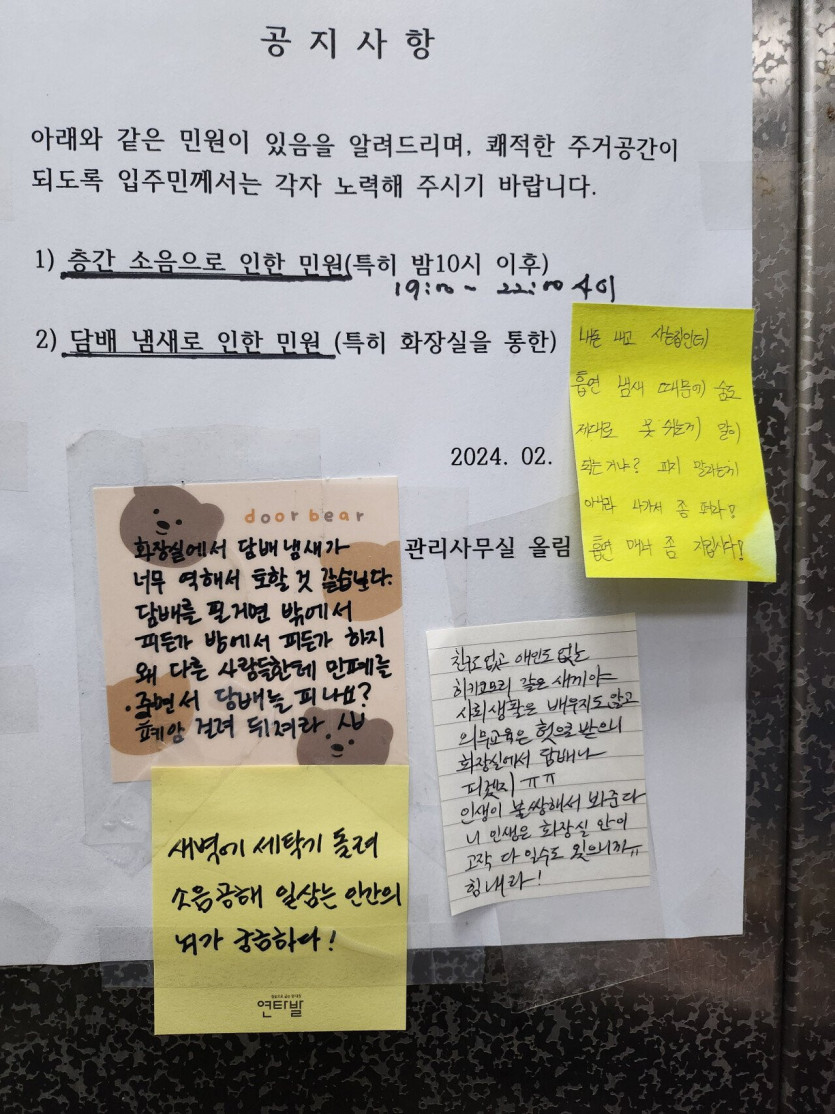 공 지 사 항
아래와 같은 민원이 있음을 알려드리며, 쾌적한 주거공간이
되도록 입주민께서는 각자 노력해 주시기 바랍니다.
1) 층간 소음으로 인한 민원(특히 밤10시 이후)
19:00 ~ 22:00 사이
2) 담배 냄새로 인한 민원 (특히 화장실을 통한)
2024. 02.
관리사무실 올림
내돈 내고 사는집인데
흡연 냄새 때문에 숨도
제대로 못 쉬는게 말이
되는거냐? 피지 말라는게
아니라 나가서 좀 펴라!
흡연 매너 좀 지킵시다!
door bear
화장실에서 담배냄새가
너무 역해서 토할것 같습니다.
담배를 필거면 밖에서
피든가 방에서 피든가 하지
왜 다른 사람들한테 민폐를
주면서 담배를 피나요?
폐암 걸려 뒤져라
친구도 없고 애인도 없는
히키코모리 같은 새끼야
사회생활은 배우지도 않고
의무교육은 헛으로 받으니
화장실에서 담배나
피겠지 ㅠㅠ
인생이 불쌍해서 봐준다
니 인생은 화장실 안이
고작 다 일수도 있으니까ㅠ
힘내라!
새벽에 세탁기 돌려
소음공해 일삼는 인간의
뇌가 궁금하다!
연타발